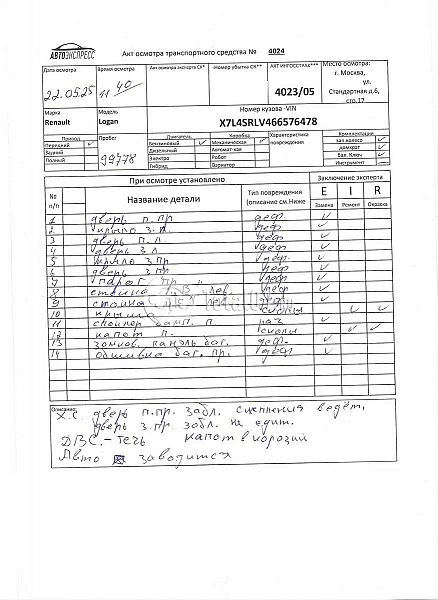 АВТОЭКСПРЕСС
Акт осмотра транспортного средства № 4024
Дата осмотра
22.05.25
Время осмотра
11 40
Акт осмотра эксперта СК*
-Номер убытка СК**
АКТ ИНГОССТРАХ***
4023/05
Место осмотра:
г. Москва,
ул.
Стандартная д.6,
стр.17
Марка
Renault
Модель
Logan
Номер кузова -VIN
X7L4SRLV466576478
Привод
Передний ✓
Задний
Полный
Пробег
99778
Двигатель
Бензиновый ✓
Дизельный
Электро
Гибрид
Коробка
Механическая ✓
Автомат-кая
Робот
Вариатор
Характеристика
повреждений
Комплектация
зап.колесо ✓
домкрат ✓
бал. Ключ ✓
Инструмент —
При осмотре установлено
Заключение эксперта
№
п/п
Название детали
Тип повреждения
(описание см.Ниже
E I R
Замена Ремонт Окраска
1 дверь п.пр деф. ✓
2 крыло з.л. деф. ✓
3 дверь п.л. деф. ✓
4 дверь з.л деф ✓
5 крыло з пр деф ✓
6 дверь з пр деф ✓
7 порог пр деф ✓
8 стойка лев. деф ✓
9 стойка деф ✓
10 крыша сколы ✓ ✓
11 спойлер бамп. п. рац ✓
12 капот п. сколы ✓ ✓
13 замков. панель баг. деф. ✓
14 обшивка баг. пр. деф ✓
Описание:
Х.С. дверь п.пр. забл. сцепления ведёт,
дверь з.пр. забл. не едит.
ДВС.- течь капот в корозии
Авто заводится